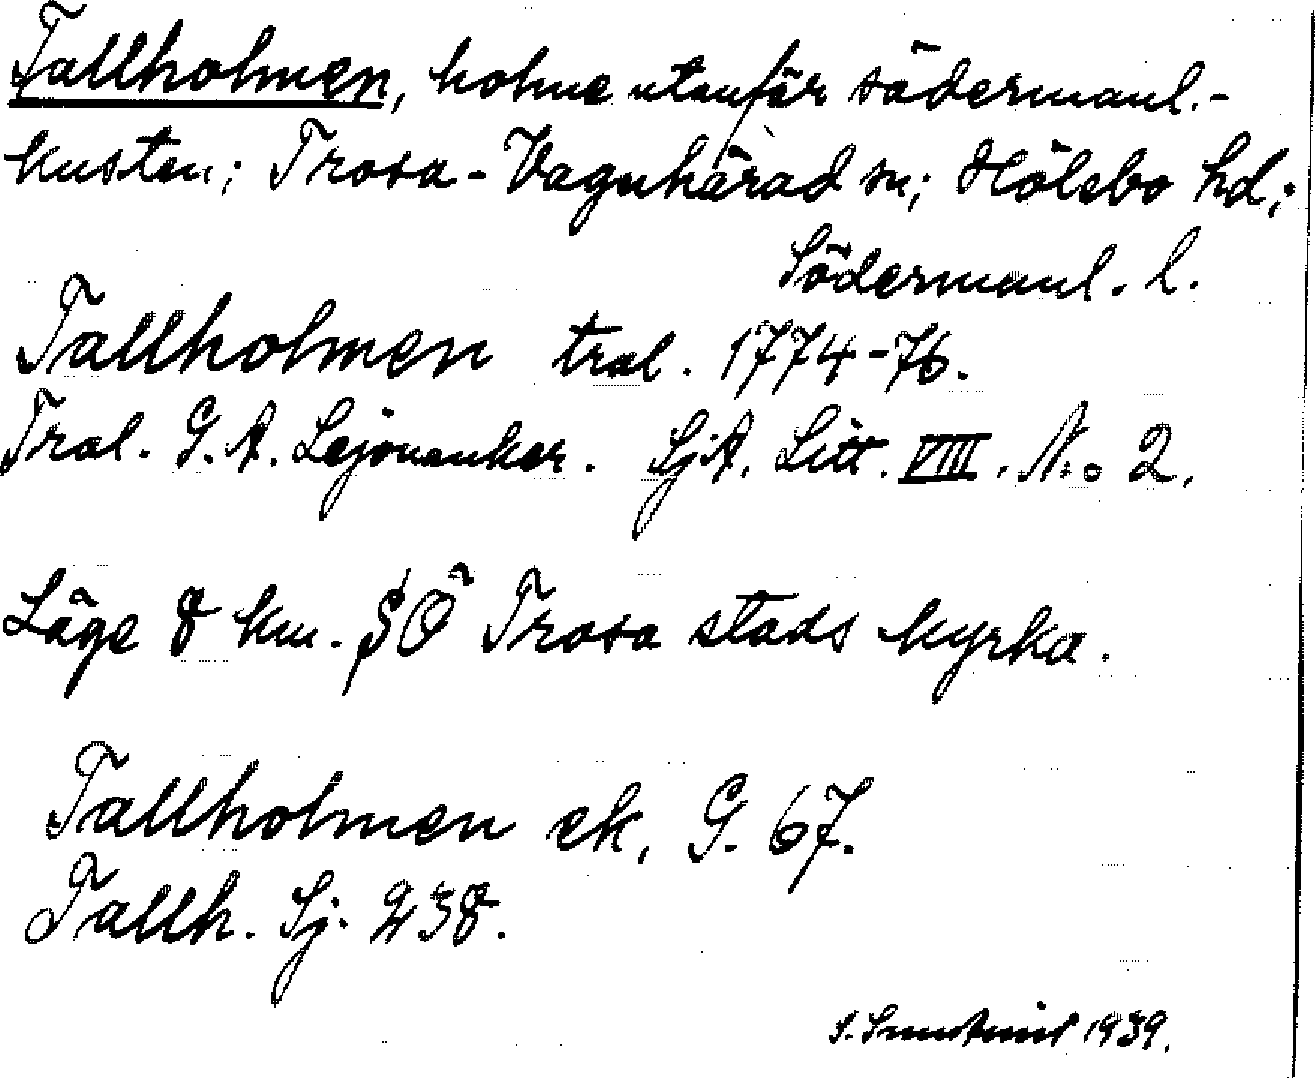 Tallholmen, holme utanför södermanl.-
kusten; Trosa-Vagnhärad sn; Hölebo hd;
Södermanl. l.
Tallholmen tral. 1774-76.
Tral. G. A. Lejonanker. SjA. Litt. VIII. No 2.
Läge 8 km. SÖ Trosa stads kyrka.
Tallholmen ek, G. 67.
Tallh. Sj. 238.
S. 1939.